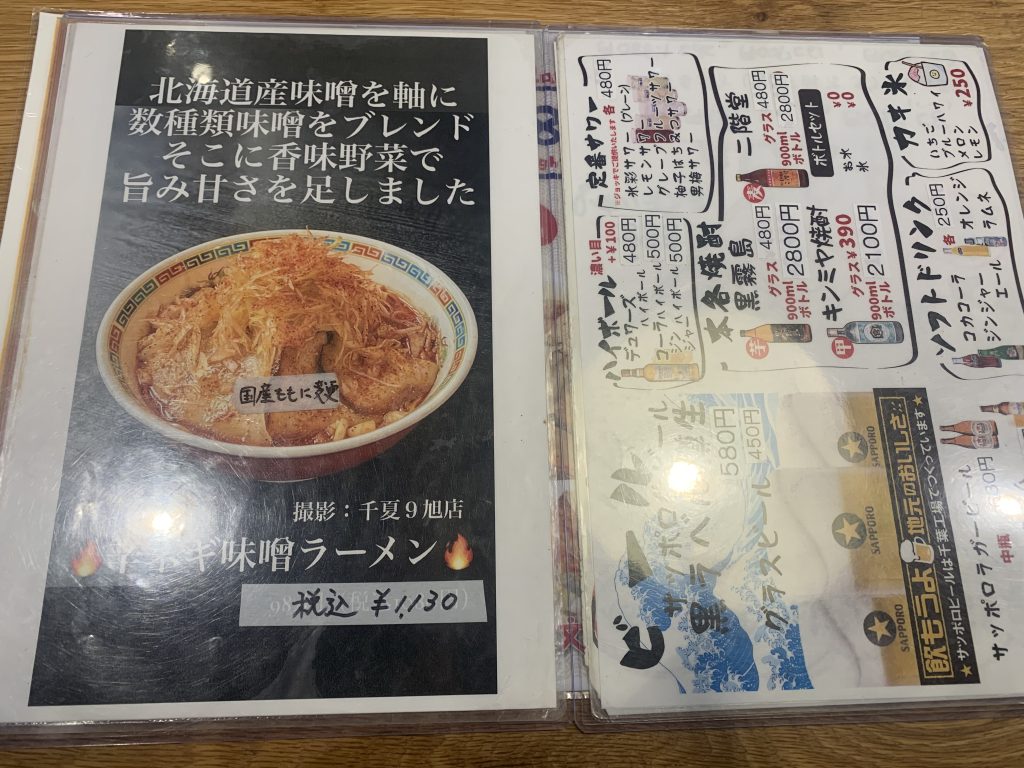 北海道産味噌を軸に
数種類味噌をブレンド
そこに香味野菜で
旨み甘さを足しました
国産ももに変更
撮影：千夏9旭店
ネギ味噌ラーメン
税込 ¥1,130
定番サワー
※ジョッキでご提供いたします 各 480円
氷彩サワー（プレーン）
レモンサワー
グレープフルーツサワー
柚子はちみつサワー
男梅サワー
ハイボール
濃い目 +¥100
デュワーズ 480円
コーラハイボール 500円
ジンジャーハイボール 500円
二階堂
麦
グラス 480円
900ml ボトル 2800円
ボトルセット
お水 ¥0
氷 ¥0
本各焼酎
黒霧島
芋
グラス 480円
900ml ボトル 2800円
キンミヤ焼酎
甲
グラス ¥390
900ml ボトル 2100円
カカキ 米
¥250
いちご
ブルーハワイ
メロン
レモン
ソフトドリンク
各 250円
コカコーラ
オレンジ
ジンジャーエール
ラムネ
ビール
サッポロ
黒ラベル 生 580円
グラスビール 450円
SAPPORO
SAPPORO
SAPPORO
飲もうよ 地元のおいしさ!!
★サッポロビールは千葉工場でつくっています★
サッポロラガービール
中瓶